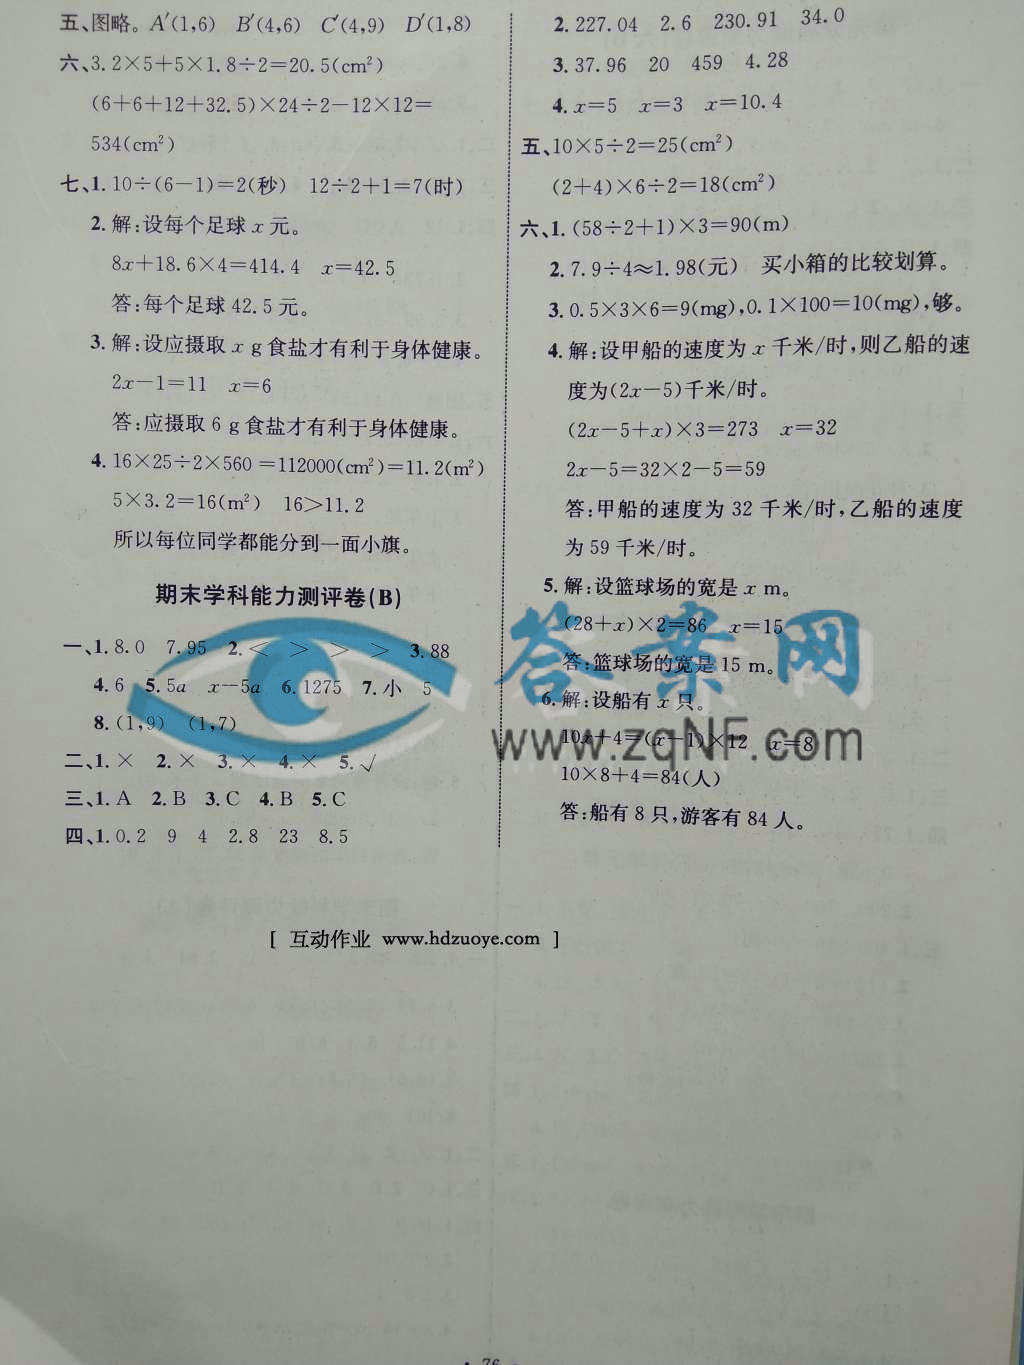 五、图略。A′(1,6) B′(4,6) C′(4,9) D′(1,8)
六、3.2×5+5×1.8÷2=20.5(cm²)
(6+6+12+32.5)×24÷2-12×12=
534(cm²)
七、1. 10÷(6-1)=2(秒) 12÷2+1=7(时)
2. 解:设每个足球 x 元。
8x+18.6×4=414.4 x=42.5
答:每个足球 42.5 元。
3. 解:设应摄取 x g 食盐才有利于身体健康。
2x-1=11 x=6
答:应摄取 6 g 食盐才有利于身体健康。
4. 16×25÷2×560=112000(cm²)=11.2(m²)
5×3.2=16(m²) 16>11.2
所以每位同学都能分到一面小旗。
期末学科能力测评卷(B)
一、1. 8.0 7.95 2. < > > > 3. 88
4. 6 5. 5a x-5a 6. 1275 7. 小 5
8. (1,9) (1,7)
二、1. × 2. × 3. × 4. × 5. √
三、1. A 2. B 3. C 4. B 5. C
四、1. 0.2 9 4 2.8 23 8.5
2. 227.04 2.6 230.91 34.0
3. 37.96 20 459 4.28
4. x=5 x=3 x=10.4
五、10×5÷2=25(cm²)
(2+4)×6÷2=18(cm²)
六、1. (58÷2+1)×3=90(m)
2. 7.9÷4≈1.98(元) 买小箱的比较划算。
3. 0.5×3×6=9(mg),0.1×100=10(mg),够。
4. 解:设甲船的速度为 x 千米/时,则乙船的速
度为(2x-5)千米/时。
(2x-5+x)×3=273 x=32
2x-5=32×2-5=59
答:甲船的速度为 32 千米/时,乙船的速度
为 59 千米/时。
5. 解:设篮球场的宽是 x m。
(28+x)×2=86 x=15
答:篮球场的宽是 15 m。
6. 解:设船有 x 只。
10x+4=(x-1)×12 x=8
10×8+4=84(人)
答:船有 8 只,游客有 84 人。
答案网
www.zqNF.com
[ 互动作业 www.hdzuoye.com ]
76